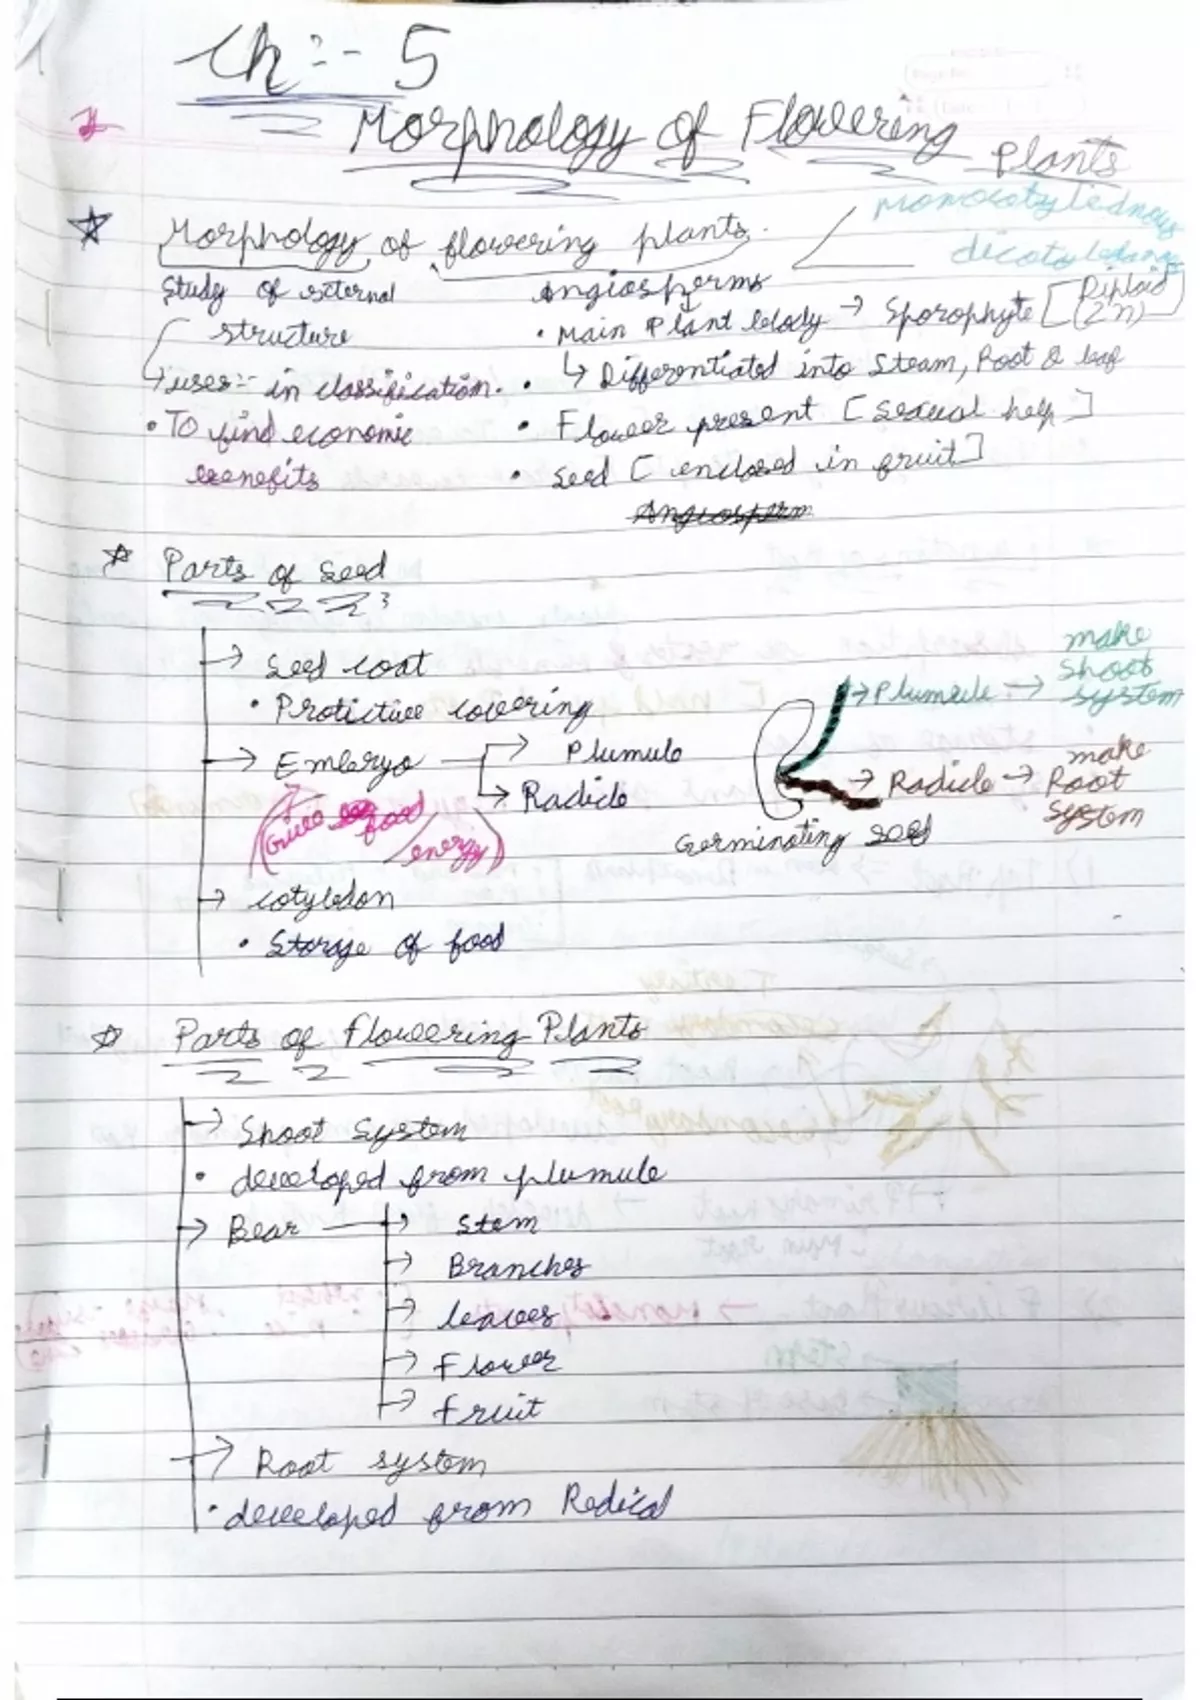 Ch :- 5
Morphology of Flowering Plants
Morphology of flowering plants.
monocotyledneous
dicotoledons
Study of external structure
uses :- in classification.
• To find economic benefits
Angiosperms
• Main Plant body → Sporophyte [Diploid (2n)]
↳ Differentiated into Steam, Root & leaf
• Flower present [sexual help]
• Seed [enclosed in fruit]
Angiosperm
Parts of Seed
→ Seed coat
• Protictive covering
→ Embryo → Plumule
→ Radicle
(Give food / energy)
→ cotyledon
• Storage of food
→ Plumule → make Shoot system
→ Radicle → make Root System
Germinating seed
Parts of Flowering Plants
→ Shoot System
• developed from plumule
→ Bear → Stem
→ Branches
→ leaves
→ Flower
→ fruit
→ Root system
• developed from Redical